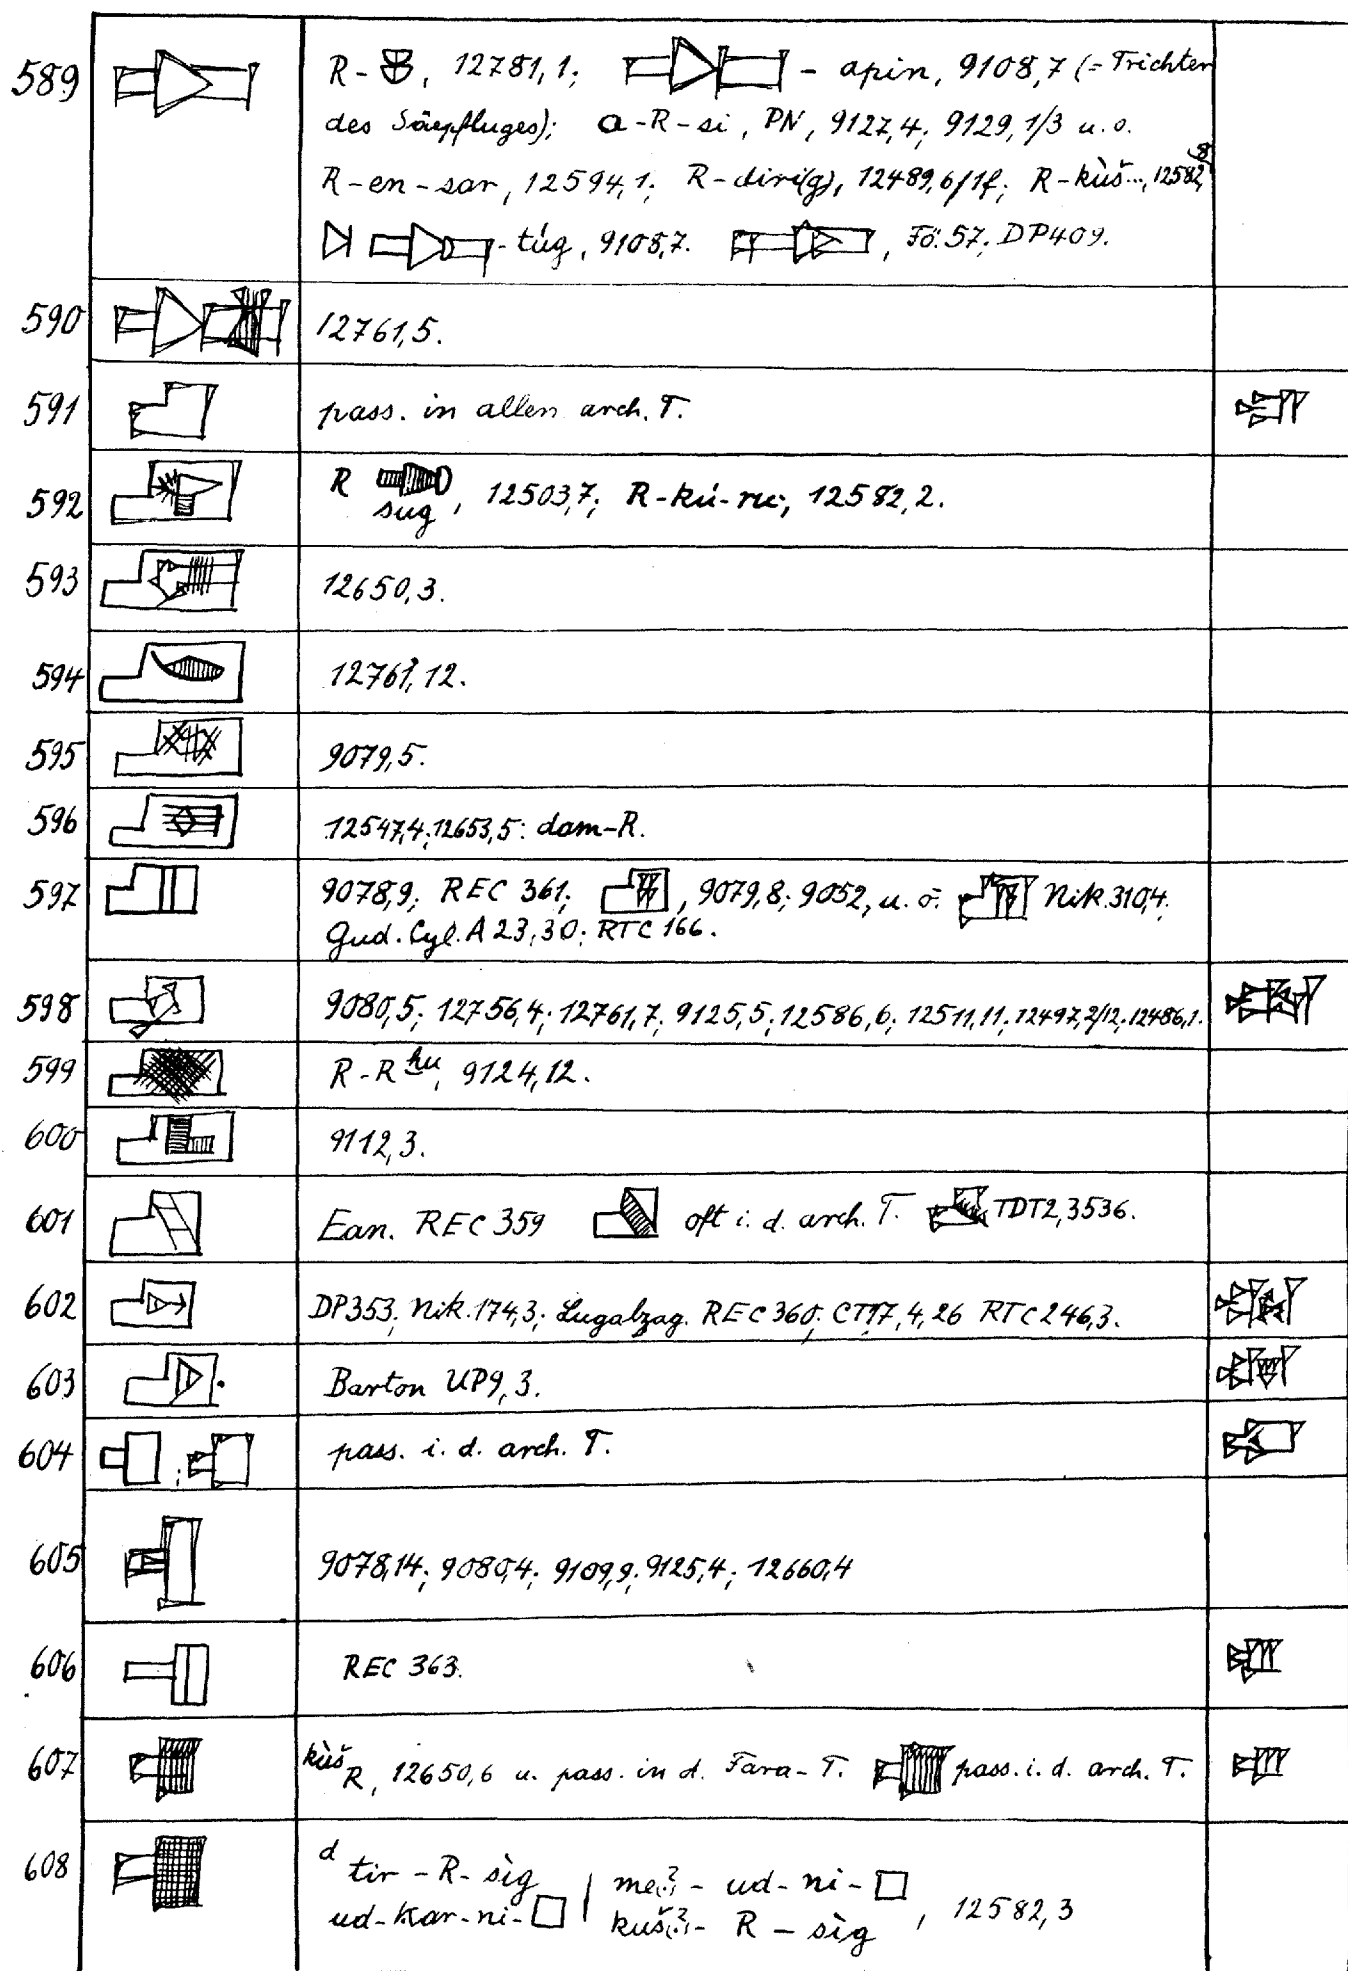 589 R- , 12781,1; - apin, 9108,7 (= Trichter
des Säepfluges); a-R-si, PN, 9127,4; 9129,1/3 u. o.
R-en-sar, 12594,1; R-diri(g), 12489,6/1f; R-kùš..., 12582,8
-túg, 9108,7. , Fö. 57; DP 409.
590 12761,5.
591 pass. in allen arch. T.
592 R , 12503,7; R-kú-ru, 12582,2.
sug
593 12650,3.
594 12761,12.
595 9079,5.
596 12547,4; 12653,5: dam-R.
597 9078,9; REC 361; , 9079,8; 9052, u. ö. Nik. 310,4.
Gud. Cyl. A 23,30; RTC 166.
598 9080,5; 12756,4; 12761,7; 9125,5; 12586,6; 12511,11; 12497,2/12; 12486,1.
599 R-R hu, 9124,12.
600 9112,3.
601 Ean. REC 359 oft i. d. arch. T. TDT2,3536.
602 DP 353; Nik. 174,3; Lugalzag. REC 360; CT 17,4,26 RTC 246,3.
603 Barton UP 9,3.
604 ; pass. i. d. arch. T.
605 9078,14; 9080,4; 9109,9; 9125,4; 12660,4
606 REC 363.
607 kùš R, 12650,6 u. pass. in d. Fara-T. pass. i. d. arch. T.
608 d tir-R-sìg | me(?)-ud-ni-□
ud-kar-ni-□ | kuš(?)-R-sìg, 12582,3